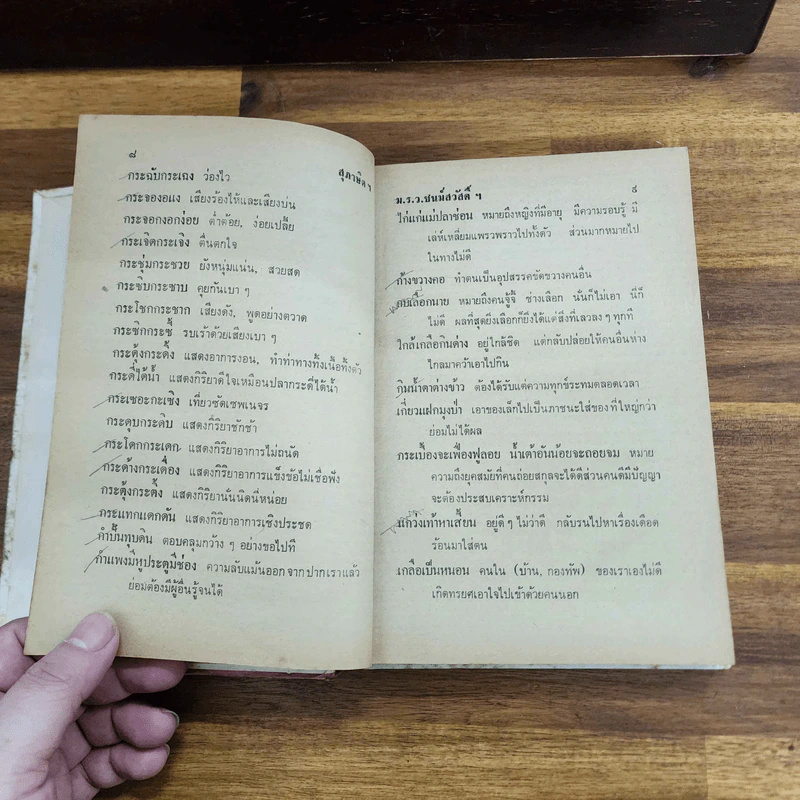 ๘
สุภาษิต ฯ
กระฉับกระเฉง ว่องไว
กระจองอแง เสียงร้องไห้และเสียงบ่น
กระจอกงอกง่อย ต่ำต้อย, ง่อยเปลี้ย
กระเจิดกระเจิง ตื่นตกใจ
กระชุ่มกระชวย ยังหนุ่มแน่น, สวยสด
กระซิบกระซาบ คุยกันเบา ๆ
กระโชกกระชาก เสียงดัง, พูดอย่างตวาด
กระซิกกระซี้ รบเร้าด้วยเสียงเบา ๆ
กระตุ้งกระติ้ง แสดงอาการงอน, ทำท่าทางทิ้งเนื้อทิ้งตัว
กระดี่ได้น้ำ แสดงกิริยาดีใจเหมือนปลากระดี่ได้น้ำ
กระเซอะกะเซิง เที่ยวซัดเซพเนจร
กระดุบกระดิบ แสดงกิริยาชักช้า
กระโดกกระเดก แสดงกิริยาอาการไม่ถนัด
กระด้างกระเดื่อง แสดงกิริยาอาการแข็งข้อไม่เชื่อฟัง
กระตุ้งกระติ้ง แสดงกิริยานั่นนิดนี่หน่อย
กระแทกแดกดัน แสดงกิริยาอาการเชิงประชด
กำปั้นทุบดิน ตอบคลุมกว้าง ๆ อย่างขอไปที
กำแพงมีหูประตูมีช่อง ความลับแม้นออกจากปากเราแล้ว
ย่อมต้องมีผู้อื่นรู้จนได้
ม.ร.ว.ชนม์สวัสดิ์ ฯ
๙
ไก่แก่แม่ปลาช่อน หมายถึงหญิงที่มีอายุ มีความรอบรู้ มี
เล่ห์เหลี่ยมแพรวพราวไปทั้งตัว ส่วนมากหมายไป
ในทางไม่ดี
ก้างขวางคอ ทำตนเป็นอุปสรรคขัดขวางคนอื่น
กบเลือกนาย หมายถึงคนจู้จี้ ช่างเลือก นั่นก็ไม่เอา นี่ก็
ไม่ดี ผลที่สุดยิ่งเลือกก็ยิ่งได้แต่สิ่งที่เลวลง ๆ ทุกที
ใกล้เกลือกินด่าง อยู่ใกล้ชิด แต่กลับปล่อยให้คนอื่นห่าง
ไกลมาคว้าเอาไปกิน
กินน้ำตาต่างข้าว ต้องได้รับแต่ความทุกข์ระทมตลอดเวลา
เกี่ยวแฝกมุงป่า เอาของเล็กไปเป็นภาชนะใส่ของที่ใหญ่กว่า
ย่อมไม่ได้ผล
กระเบื้องจะเฟื่องฟูลอย น้ำเต้าอันน้อยจะถอยจม หมาย
ความถึงยุคสมัยที่คนถ่อยสกุลจะได้ดีส่วนคนดีมีปัญญา
จะต้องประสบเคราะห์กรรม
แกว่งเท้าหาเสี้ยน อยู่ดี ๆ ไม่ว่าดี กลับรนไปหาเรื่องเดือด
ร้อนมาใส่ตน
เกลือเป็นหนอน คนใน (บ้าน, กองทัพ) ของเราเองไม่ดี
เกิดทรยศเอาใจไปเข้าด้วยคนนอก